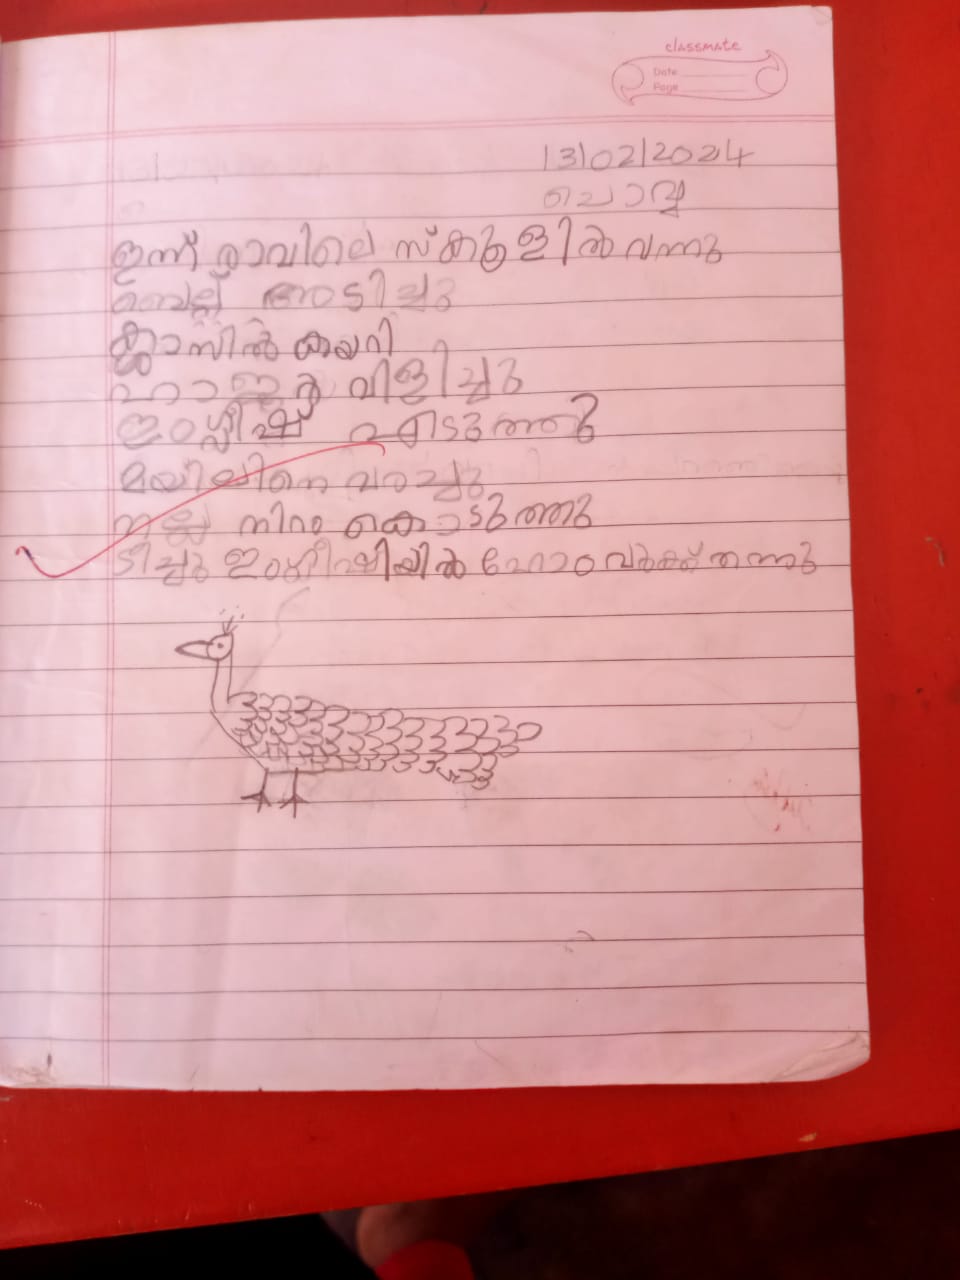 classmate
Date
Page
13/02/2024
ചൊവ്വ
ഇന്ന് രാവിലെ സ്കൂളിൽ വന്നു
ബെല്ല് അടിച്ചു
ക്ലാസിൽ കയറി
ഹാജർ വിളിച്ചു
ഇംഗ്ലീഷ് എടുത്തു
മയിലിനെ വരച്ചു
നല്ല നിറം കൊടുത്തു
ടീച്ചു ഇംഗ്ലീഷിയിൽ ഹോംവർക്ക് തന്നു